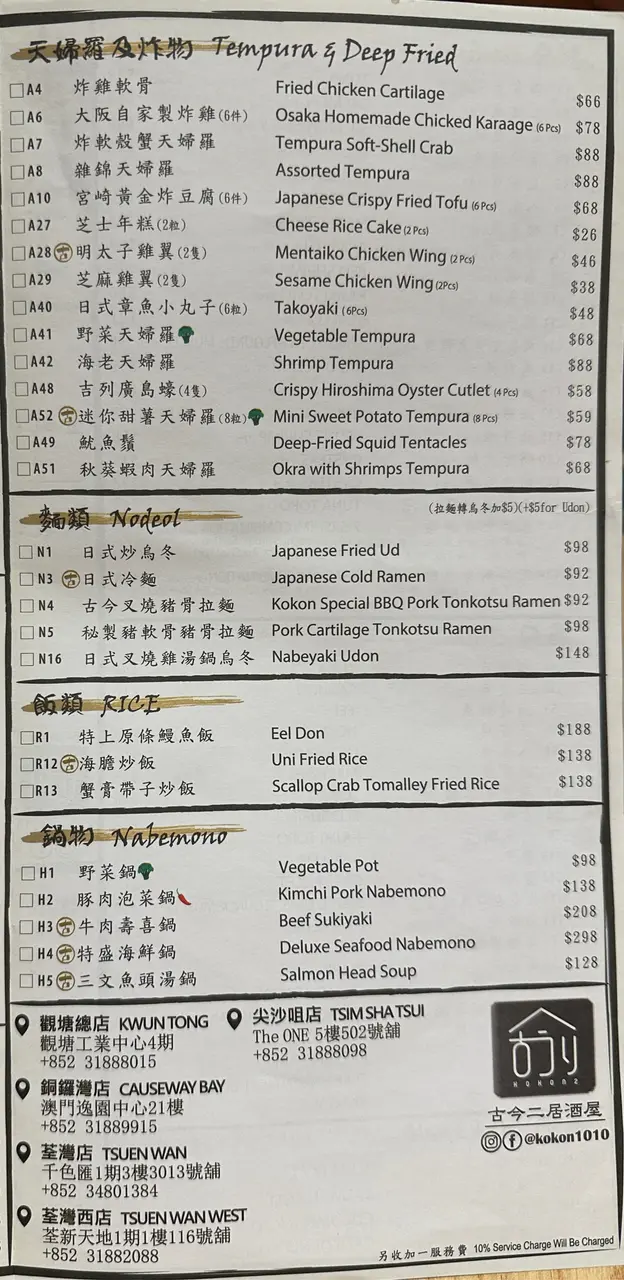 天婦羅及炸物 Tempura & Deep Fried
A4 炸雞軟骨 Fried Chicken Cartilage $66
A6 大阪自家製炸雞(6件) Osaka Homemade Chicked Karaage (6 Pcs) $78
A7 炸軟殼蟹天婦羅 Tempura Soft-Shell Crab $88
A8 雜錦天婦羅 Assorted Tempura $88
A10 宮崎黃金炸豆腐(6件) Japanese Crispy Fried Tofu (6 Pcs) $68
A27 芝士年糕(2粒) Cheese Rice Cake (2 Pcs) $26
A28 古 明太子雞翼(2隻) Mentaiko Chicken Wing (2 Pcs) $46
A29 芝麻雞翼(2隻) Sesame Chicken Wing (2Pcs) $38
A40 日式章魚小丸子(6粒) Takoyaki (6Pcs) $48
A41 野菜天婦羅 Vegetable Tempura $68
A42 海老天婦羅 Shrimp Tempura $88
A48 吉列廣島蠔(4隻) Crispy Hiroshima Oyster Cutlet (4 Pcs) $58
A52 古 迷你甜薯天婦羅(8粒) Mini Sweet Potato Tempura (8 Pcs) $59
A49 魷魚鬚 Deep-Fried Squid Tentacles $78
A51 秋葵蝦肉天婦羅 Okra with Shrimps Tempura $68
麵類 Nodeol (拉麵轉烏冬加$5)(+$5for Udon)
N1 日式炒烏冬 Japanese Fried Ud $98
N3 古 日式冷麵 Japanese Cold Ramen $92
N4 古今叉燒豬骨拉麵 Kokon Special BBQ Pork Tonkotsu Ramen $92
N5 秘製豬軟骨豬骨拉麵 Pork Cartilage Tonkotsu Ramen $98
N16 日式叉燒雞湯鍋烏冬 Nabeyaki Udon $148
飯類 RICE
R1 特上原條鰻魚飯 Eel Don $188
R12 古 海膽炒飯 Uni Fried Rice $138
R13 蟹膏帶子炒飯 Scallop Crab Tomalley Fried Rice $138
鍋物 Nabemono
H1 野菜鍋 Vegetable Pot $98
H2 豚肉泡菜鍋 Kimchi Pork Nabemono $138
H3 古 牛肉壽喜鍋 Beef Sukiyaki $208
H4 古 特盛海鮮鍋 Deluxe Seafood Nabemono $298
H5 古 三文魚頭湯鍋 Salmon Head Soup $128
觀塘總店 KWUN TONG
觀塘工業中心4期
+852 31888015
尖沙咀店 TSIM SHA TSUI
The ONE 5樓502號舖
+852 31888098
銅鑼灣店 CAUSEWAY BAY
澳門逸園中心21樓
+852 31889915
荃灣店 TSUEN WAN
千色匯1期3樓3013號舖
+852 34801384
荃灣西店 TSUEN WAN WEST
荃新天地1期1樓116號舖
+852 31882088
古今二居酒屋
@kokon1010
另收加一服務費 10% Service Charge Will Be Charged